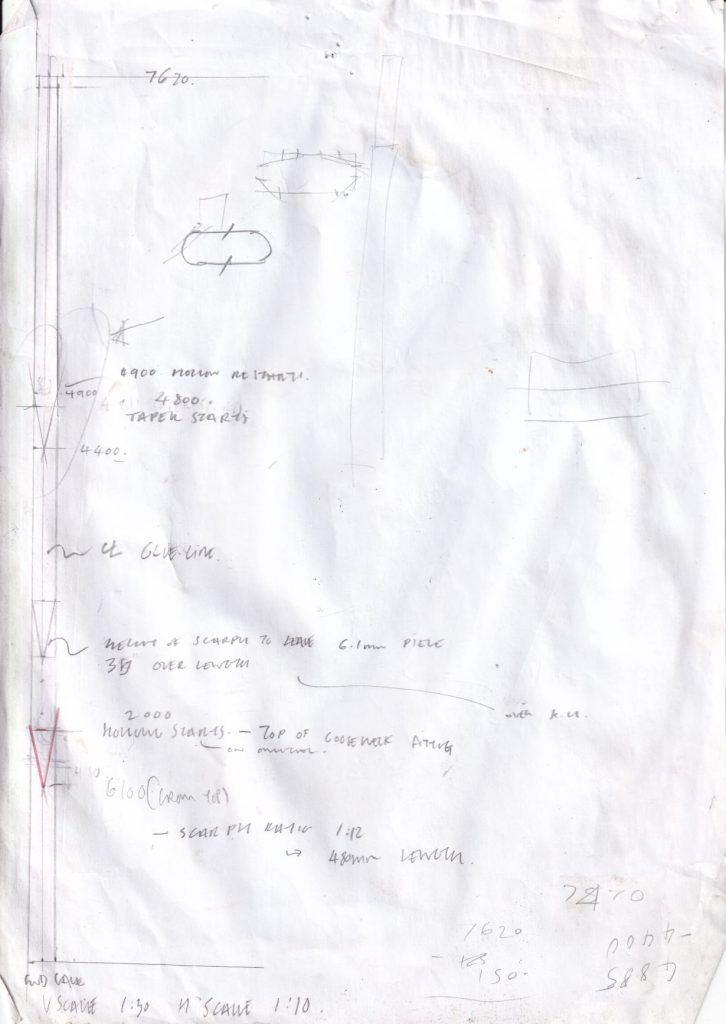 7620.
4900 HOLLOW RESTARTS.
4900
4800.
TAPER STARTS
4400.
GLUE LINE
OF SCARPH TO LEAVE 6.1mm PIECE
OVER LENGTH
OVER
2000
HOLLOW STARTS. – TOP OF GOOSENECK FITTING
ON ORIGINAL.
6100 (FROM TOP)
– SCARPH RATIO 1:12
↳ 480mm LENGTH.
7620
– 150.
-4400
V SCALE 1:30 H SCALE 1:10.